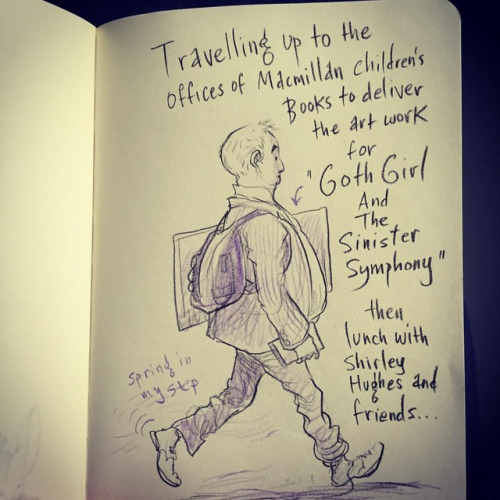 Travelling up to the
offices of Macmillan Children's
Books to deliver
the art work
for
"Goth Girl
And
The
Sinister
Symphony"
then
lunch with
Shirley
Hughes and
friends...
spring in
my step